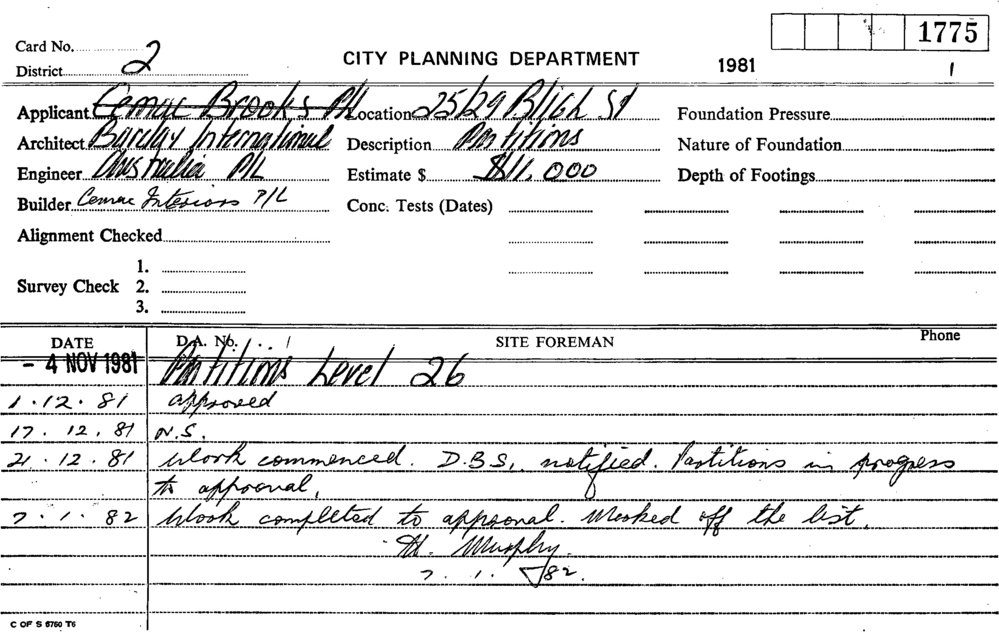 1775
Card No. 2
District
CITY PLANNING DEPARTMENT
1981
1
Applicant Cemac Brooks P/L
Location 25/29 Bligh St
Foundation Pressure
Architect Barclay International
Description Partitions
Nature of Foundation
Engineer Australia P/L
Estimate $ $11,000
Depth of Footings
Builder Cemac Interiors P/L
Conc. Tests (Dates)
Alignment Checked
1.
Survey Check 2.
3.
DATE D.A. No. SITE FOREMAN Phone
- 4 NOV 1981 Partitions Level 26
1.12.81 approved
17.12.81 N.S.
21.12.81 Work commenced. D.B.S. notified. Partitions in progress
to approval.
7.1.82 Work completed to approval. Marked off the list.
M. Murphy.
7.1.82.
C OF S 6760 T6